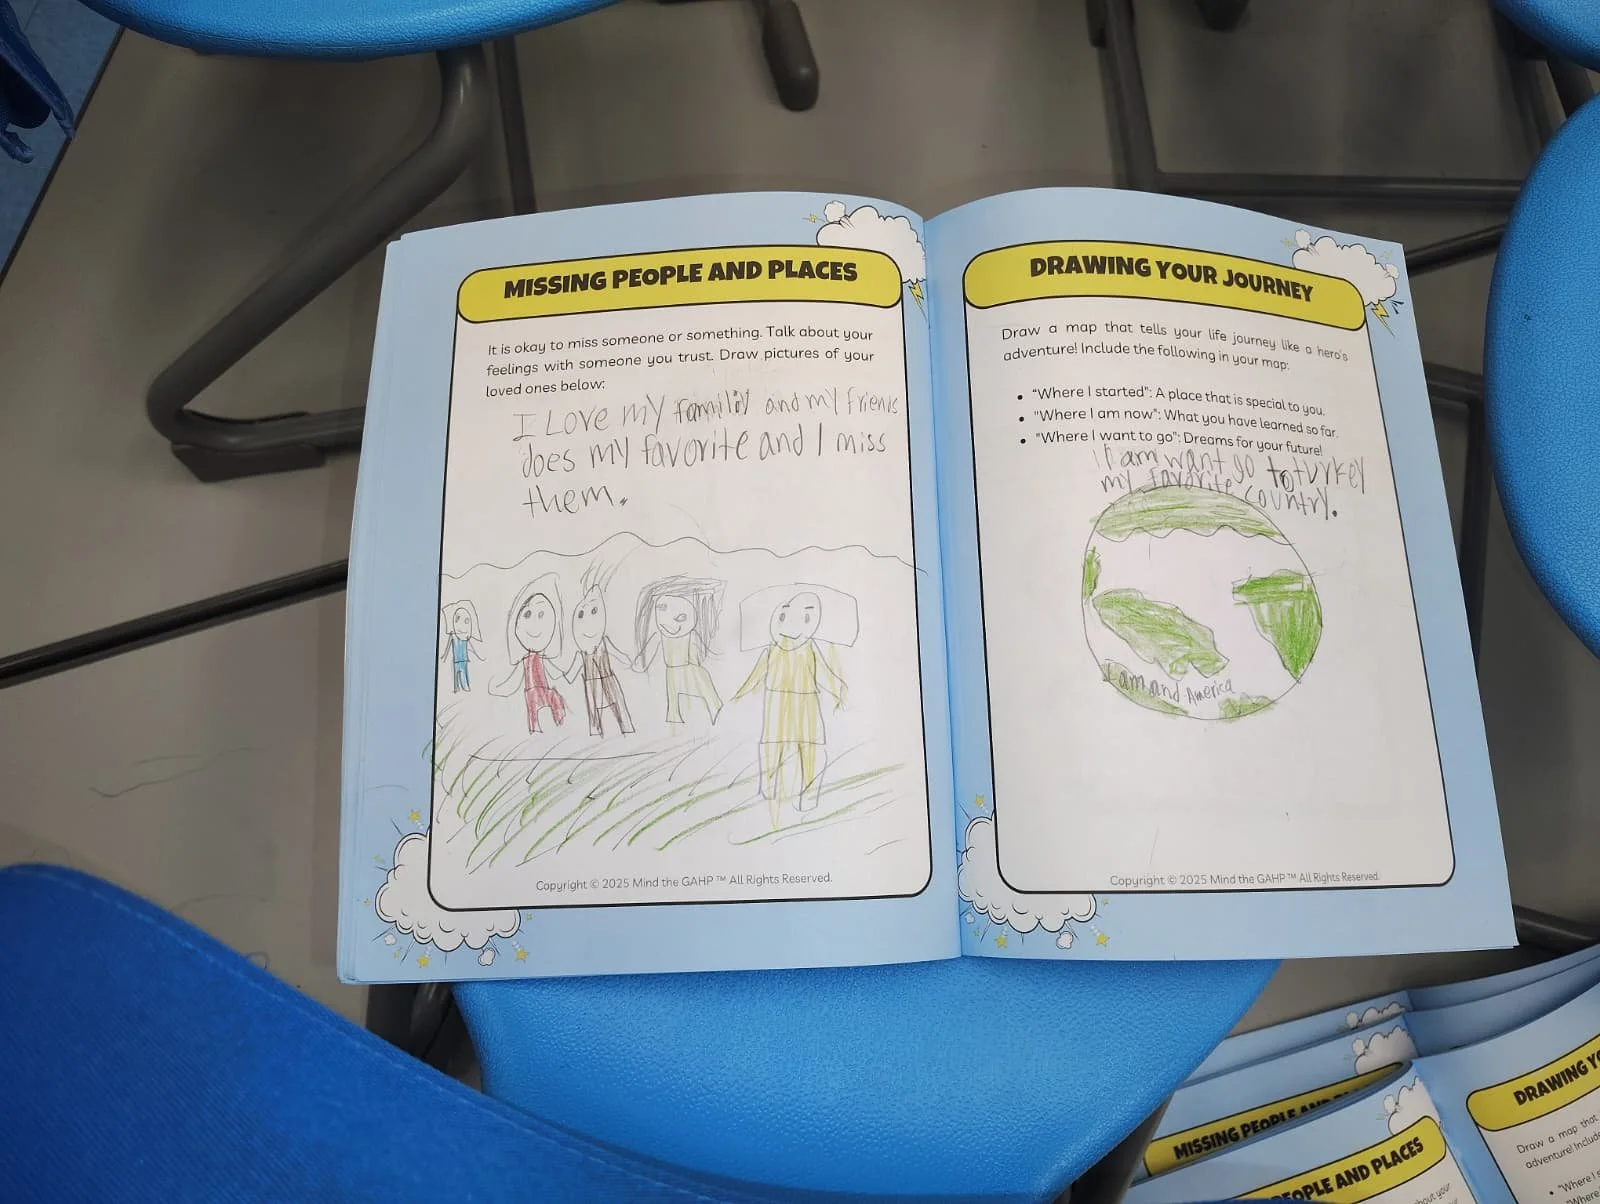 MISSING PEOPLE AND PLACES
It is okay to miss someone or something. Talk about your
feelings with someone you trust. Draw pictures of your
loved ones below:
I Love my and my friends
does my favorite and I miss
them.
Copyright © 2025 Mind the GAHP ™ All Rights Reserved.
DRAWING YOUR JOURNEY
Draw a map that tells your life journey like a hero's
adventure! Include the following in your map:
• "Where I started": A place that is special to you.
• "Where I am now": What you have learned so far.
• "Where I want to go": Dreams for your future!
I am want go to turkey
my favorite country.
I am and America
Copyright © 2025 Mind the GAHP ™ All Rights Reserved.
MISSING PEOPLE AND
OPLE AND PLACES
about your
DRAWING YO
Draw a map that
adventure! Include
• "Where I s
"Where